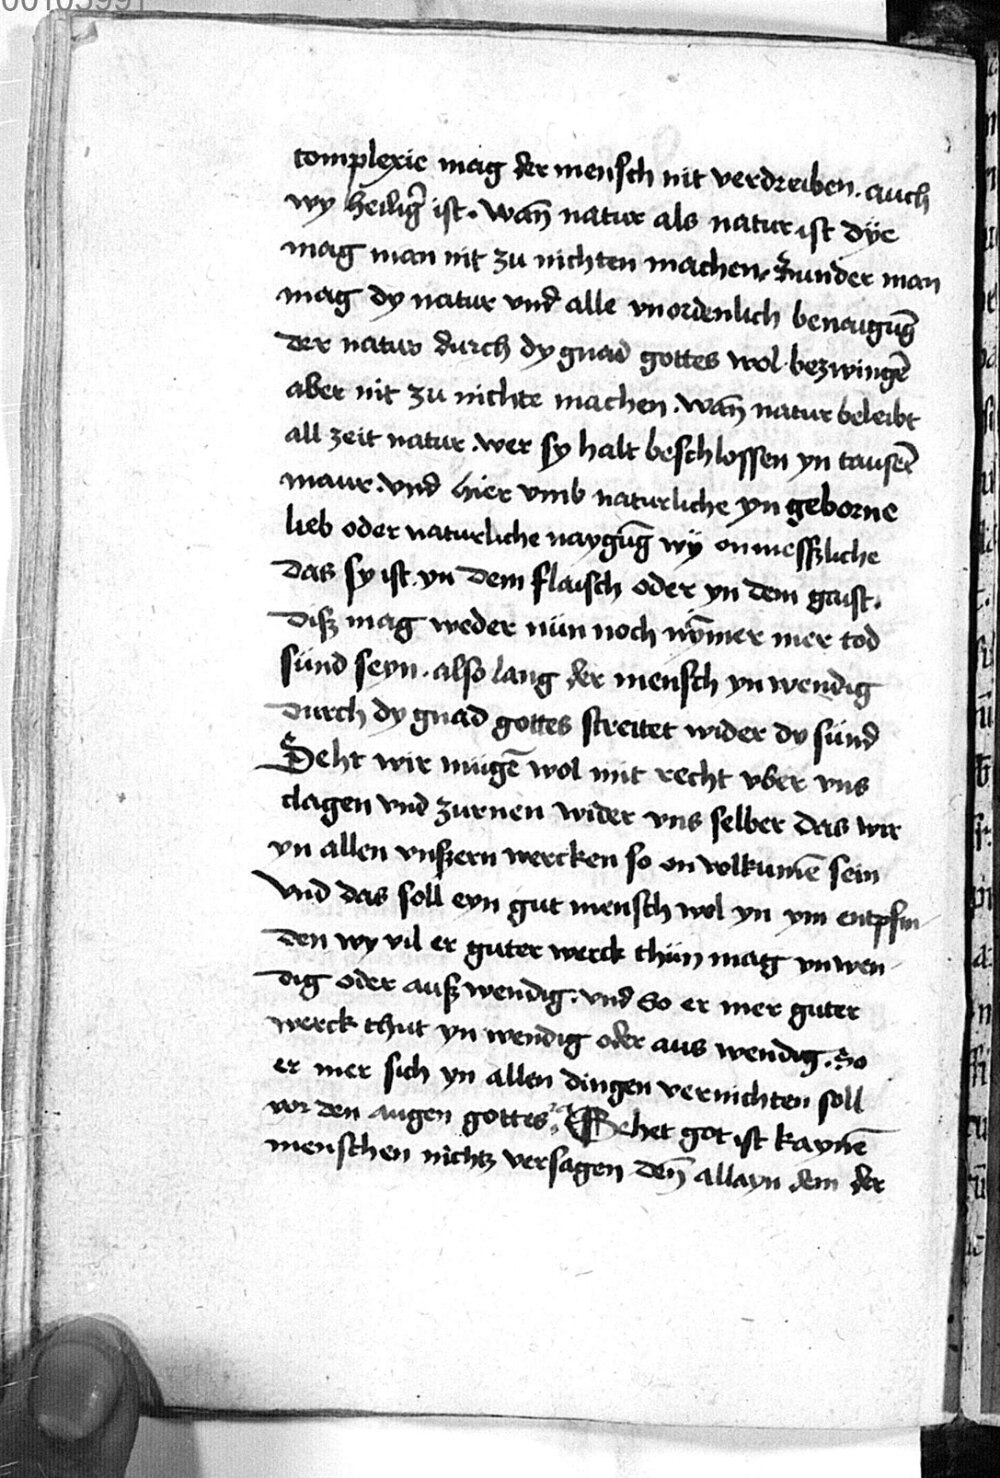 00105991
complexie mag der mensch nit verdreiben. auch
wy heilig̃ ist. Wañ natur als natur ist dÿe
mag man nit zu nichten machen. Sunder man
mag dy natur vnd alle vnordenlich benaigūg
der natur durch dy gnad gottes wol bezwingē
aber nit zu nichte machen. Wañ natur beleibt
all zeit natur. wer sy halt beschlossen yn tausēt
maur. vnd hier vmb naturliche yn geborne
lieb oder naturliche naygūg wÿ onmesszliche
das sy ist. yn dem flaisch oder yn dem gaist.
disz mag weder nün noch nȳmer mer tod
sünd seyn. also lang der mensch yn wendig
durch dy gnad gottes streitet wider dy sünd
Seht wir mugē wol mit recht vber vns
clagen vnd zurnen wider vns selber das wir
yn allen vnszern wercken so on volkumē sein
Vnd das soll eyn gut mensch wol yn ym entpfin
den wy vil er guter werck thün mag ynwen
dig oder ausz wendig. vnd So er mer guter
werck thut yn wendig oder aus wendig. So
er mer sich yn allen dingen vernichten soll
vor den augen gottes. Sehet got ist kaynē
menschen nichtz versagen den̄ allayn dem der